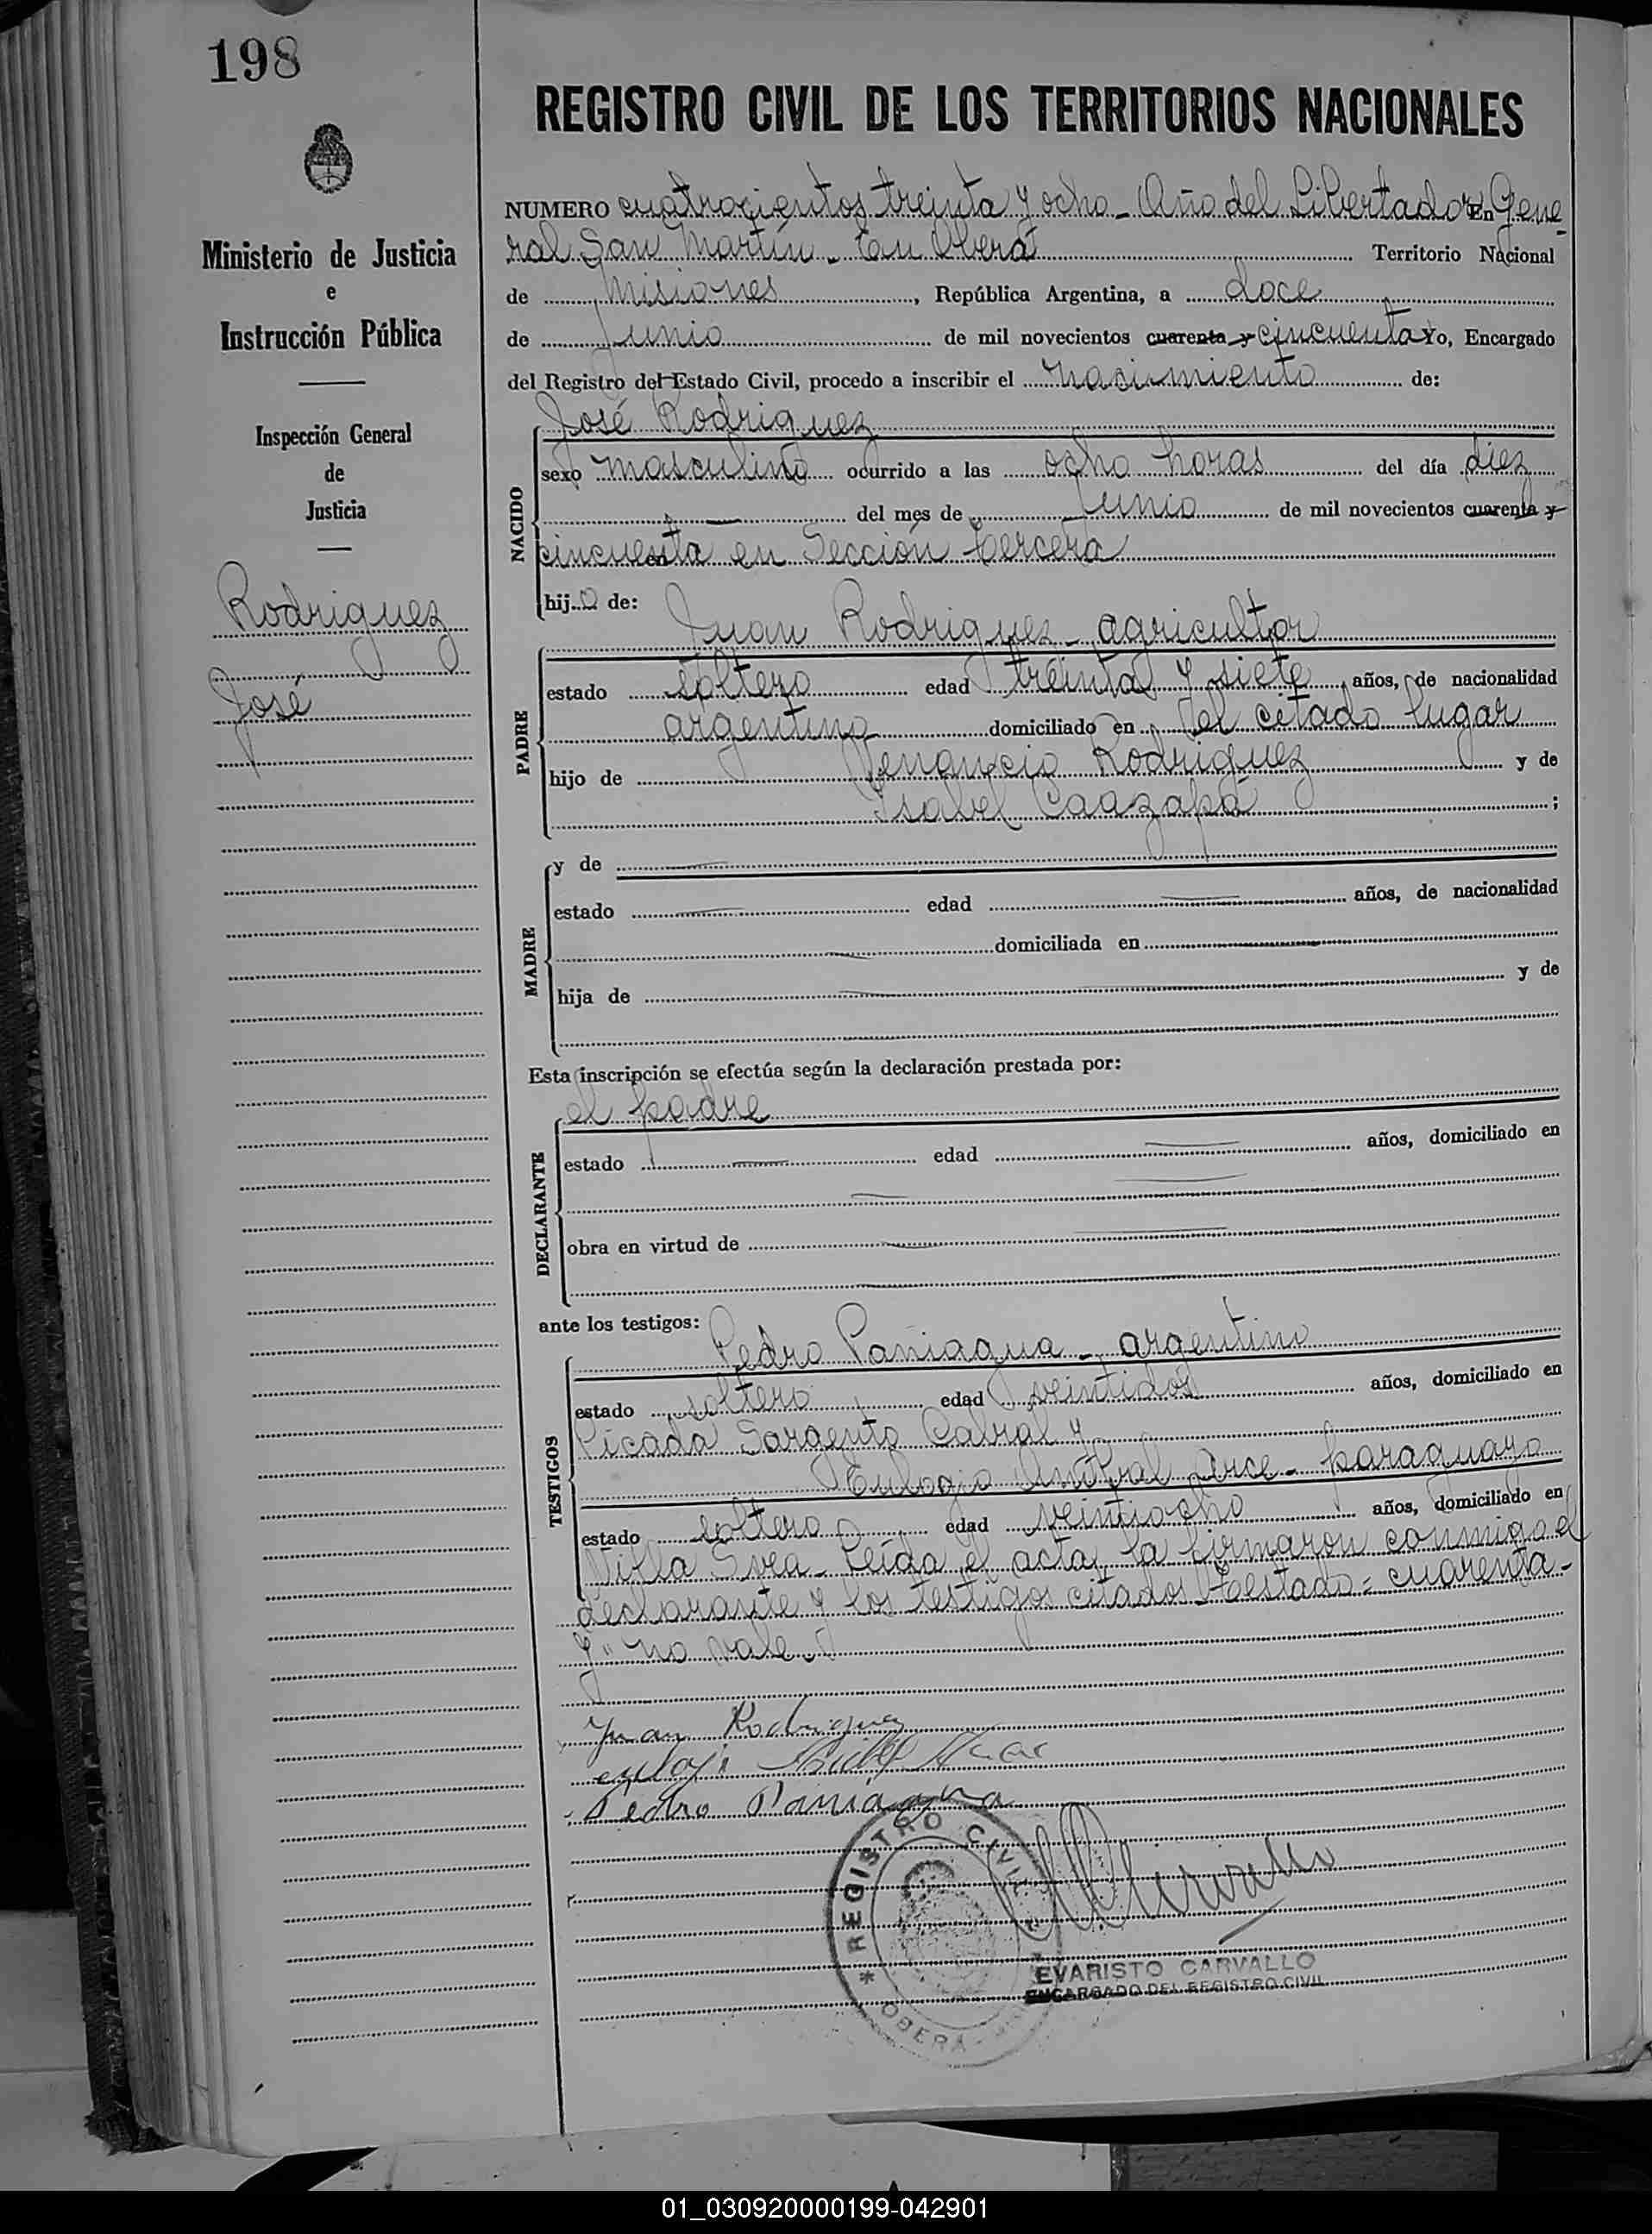 198
REGISTRO CIVIL DE LOS TERRITORIOS NACIONALES
Ministerio de Justicia
e
Instrucción Pública
Inspección General
de
Justicia
Rodriguez
José
NUMERO cuatrocientos treinta y ocho - Año del Libertador En Gene-
ral San Martín - En Oberá Territorio Nacional
de Misiones, República Argentina, a doce
de Junio de mil novecientos cuarenta y cincuenta Yo, Encargado
del Registro del Estado Civil, procedo a inscribir el nacimiento de:
José Rodriguez
NACIDO
sexo masculino ocurrido a las ocho horas del día diez
— del mes de Junio de mil novecientos cuarenta y
cincuenta en en Sección tercera
hijo de:
Juan Rodriguez - agricultor
PADRE
estado soltero edad treinta y siete años, de nacionalidad
argentino domiciliado en el citado lugar
hijo de Venancio Rodriguez y de
Isabel Caazapá ;
MADRE
y de —
estado — edad — años, de nacionalidad
— domiciliada en —
hija de — y de
—
Esta inscripción se efectúa según la declaración prestada por:
el padre
DECLARANTE
estado — edad — años, domiciliado en
—
obra en virtud de —
—
ante los testigos:
Pedro Paniagua - argentino
TESTIGOS
estado soltero edad veintidos años, domiciliado en
Picada Sargento Cabral y
Eulogio Anibal Arce - paraguayo
estado soltero edad veintiocho años, domiciliado en
Villa Svea - Leída el acta, la firmaron conmigo el
declarante y los testigos citados - Testado = cuarenta -
y" no vale.
Juan Rodriguez
Pedro Paniagua
REGISTRO CIVIL
* OBERA -
EVARISTO CARVALLO
ENCARGADO DEL REGISTRO CIVIL
01_030920000199-042901